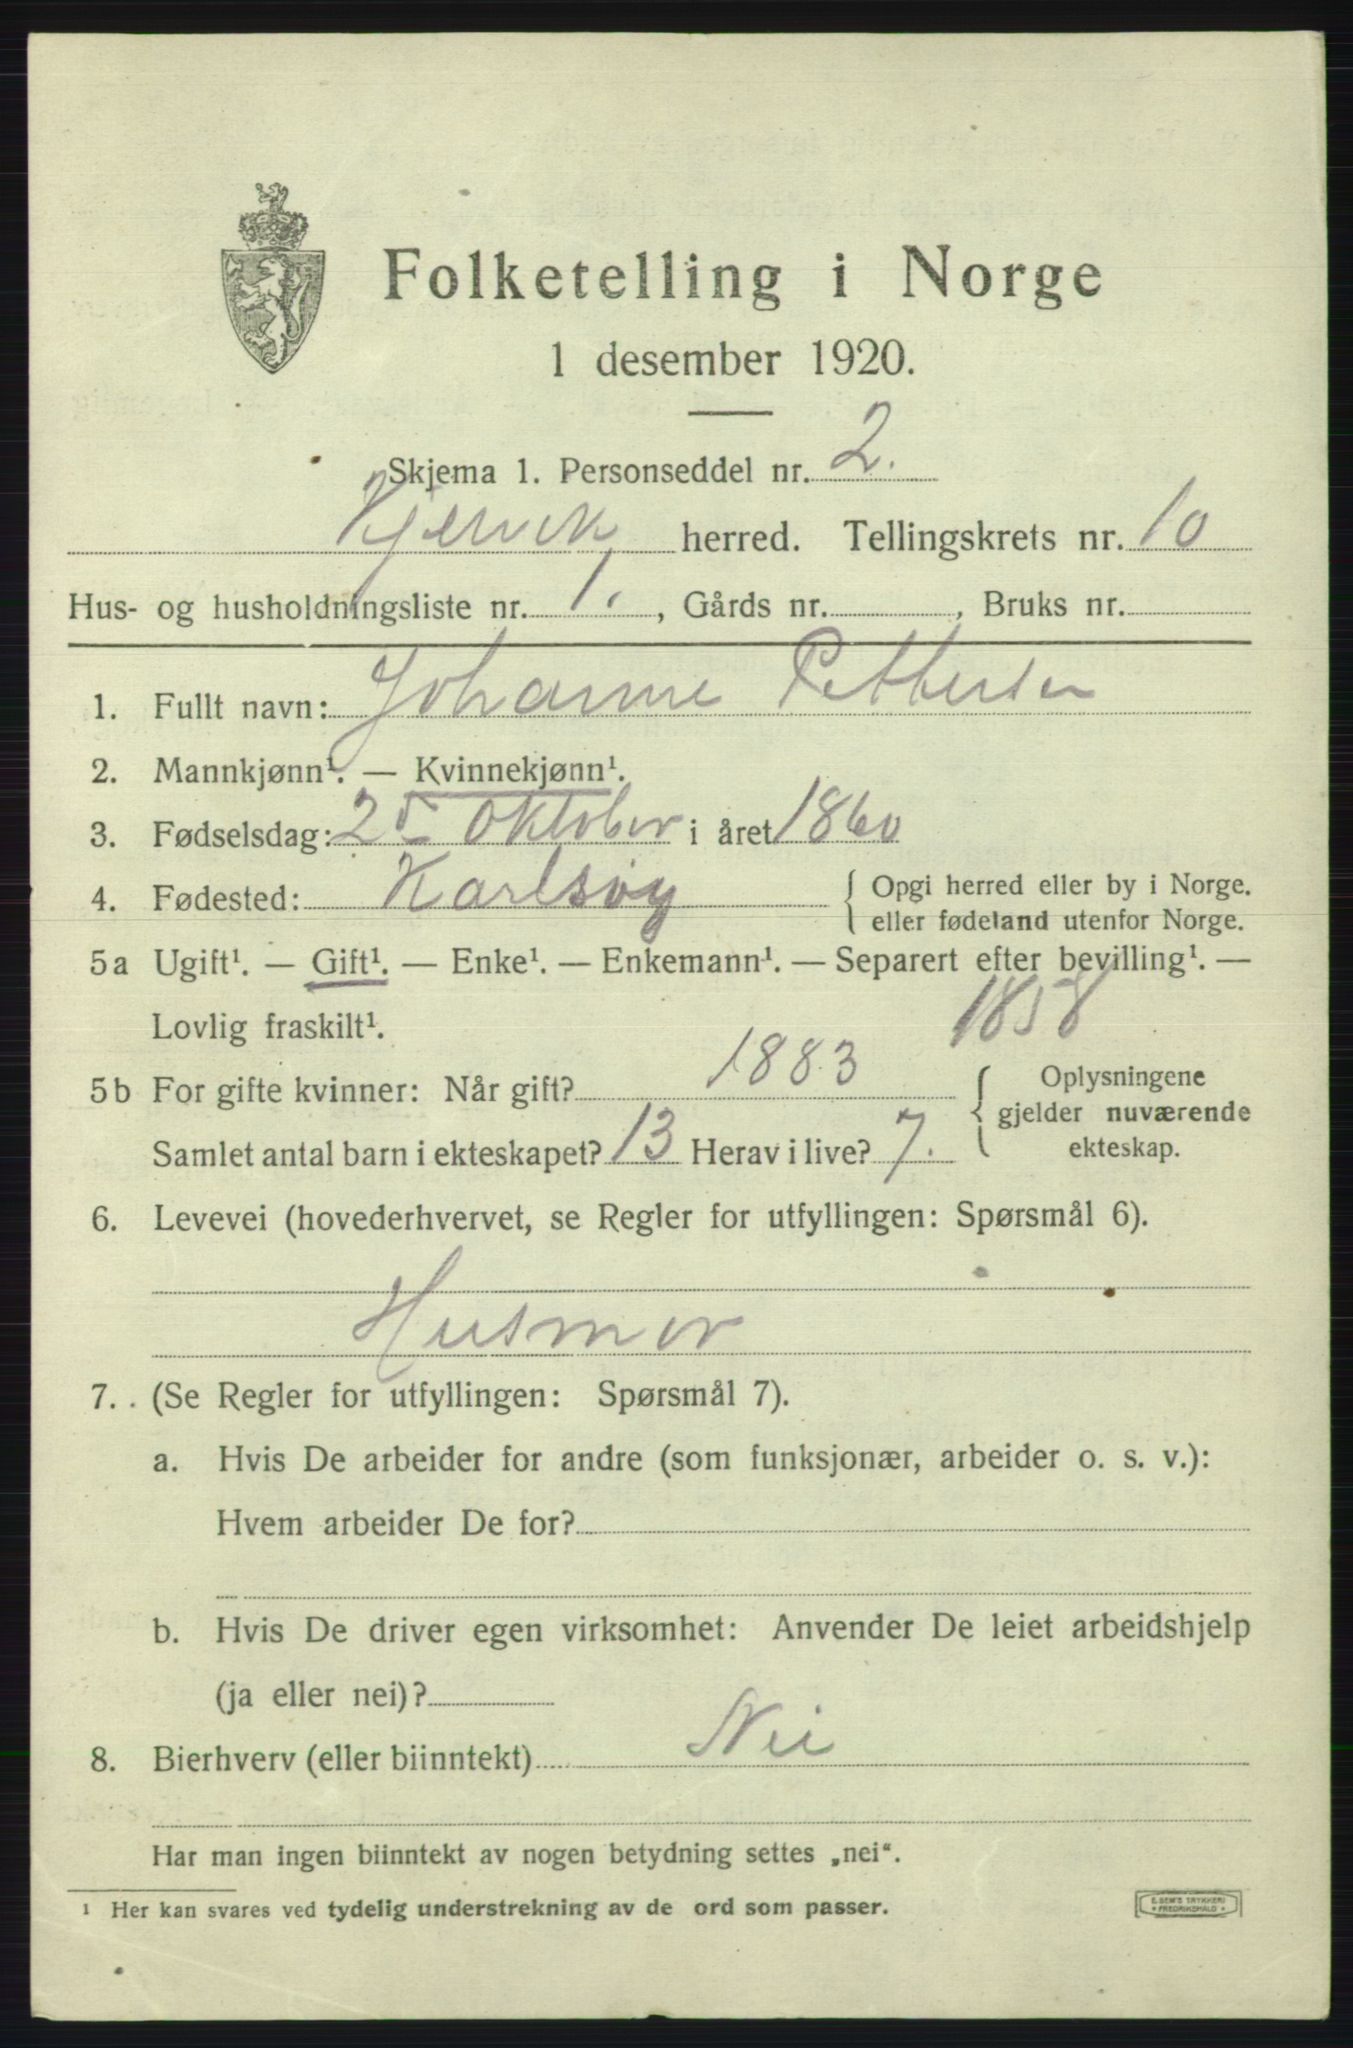 Folketelling i Norge
1 desember 1920.
Skjema 1. Personseddel nr. 2.
Kjervik herred. Tellingskrets nr. 10
Hus- og husholdningsliste nr. 1. , Gårds nr. , Bruks nr.
1. Fullt navn: Johanne Pettersen
2. Mannkjønn¹. — Kvinnekjønn¹.
3. Fødselsdag: 25 Oktober i året 1860
4. Fødested: Karlsøy { Opgi herred eller by i Norge.
eller fødeland utenfor Norge.
5a Ugift¹. — Gift¹. — Enke¹. — Enkemann¹. — Separert efter bevilling¹. —
Lovlig fraskilt¹. 1858
5b For gifte kvinner: Når gift? 1883 { Oplysningene
gjelder nuværende
ekteskap.
Samlet antal barn i ekteskapet? 13 Herav i live? 7.
6. Levevei (hovederhvervet, se Regler for utfyllingen: Spørsmål 6).
Husmor
7. . (Se Regler for utfyllingen: Spørsmål 7).
a. Hvis De arbeider for andre (som funksjonær, arbeider o. s. v.):
Hvem arbeider De for?
b. Hvis De driver egen virksomhet: Anvender De leiet arbeidshjelp
(ja eller nei)?
8. Bierhverv (eller biinntekt) Nei
Har man ingen biinntekt av nogen betydning settes „nei“.
¹ Her kan svares ved tydelig understrekning av de ord som passer.
E. SEM'S TRYKKERI
* FREDRIKSHALD *